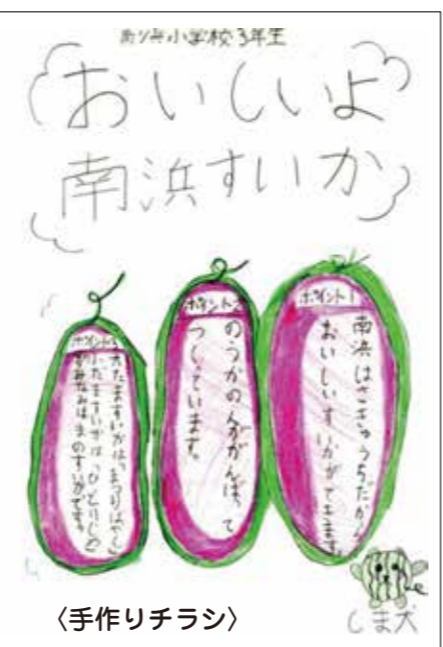 南浜小学校3年生
おいしいよ
南浜すいか
ポイント1
南浜はさきゅうちだから
おいしいすいかができます。
ポイント2
のうかの人ががんばって
つくっています。
ポイント3
大たますいかは、「まつりばやし」
小だますいかは「ひとりじめ」
がみなみはまのすいかです。
しま犬
〈手作りチラシ〉